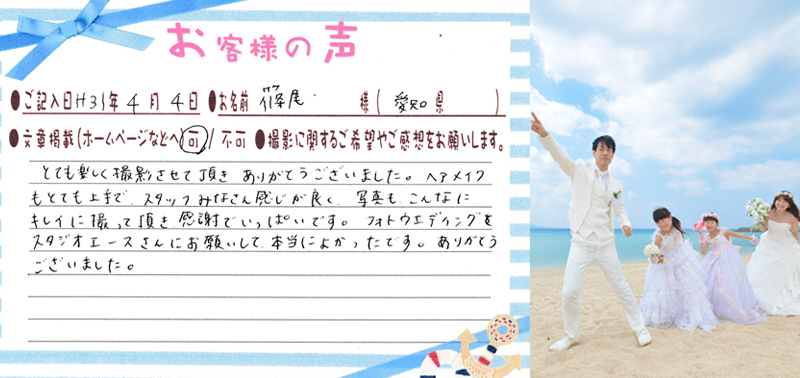 お客様の声
●ご記入日H31年4月4日 ●お名前 篠尾 様(愛知県)
●文章掲載(ホームページなどへ 可 / 不可 ●撮影に関するご希望やご感想をお願いします。
とても楽しく撮影させて頂き ありがとうございました。ヘアメイク
もとても上手で、スタッフみなさん感じが良く、写真も、こんなに
キレイに撮って頂き、感謝でいっぱいです。フォトウエディングを
スタジオエースさんにお願いして、本当によかったです。ありがとう
ございました。